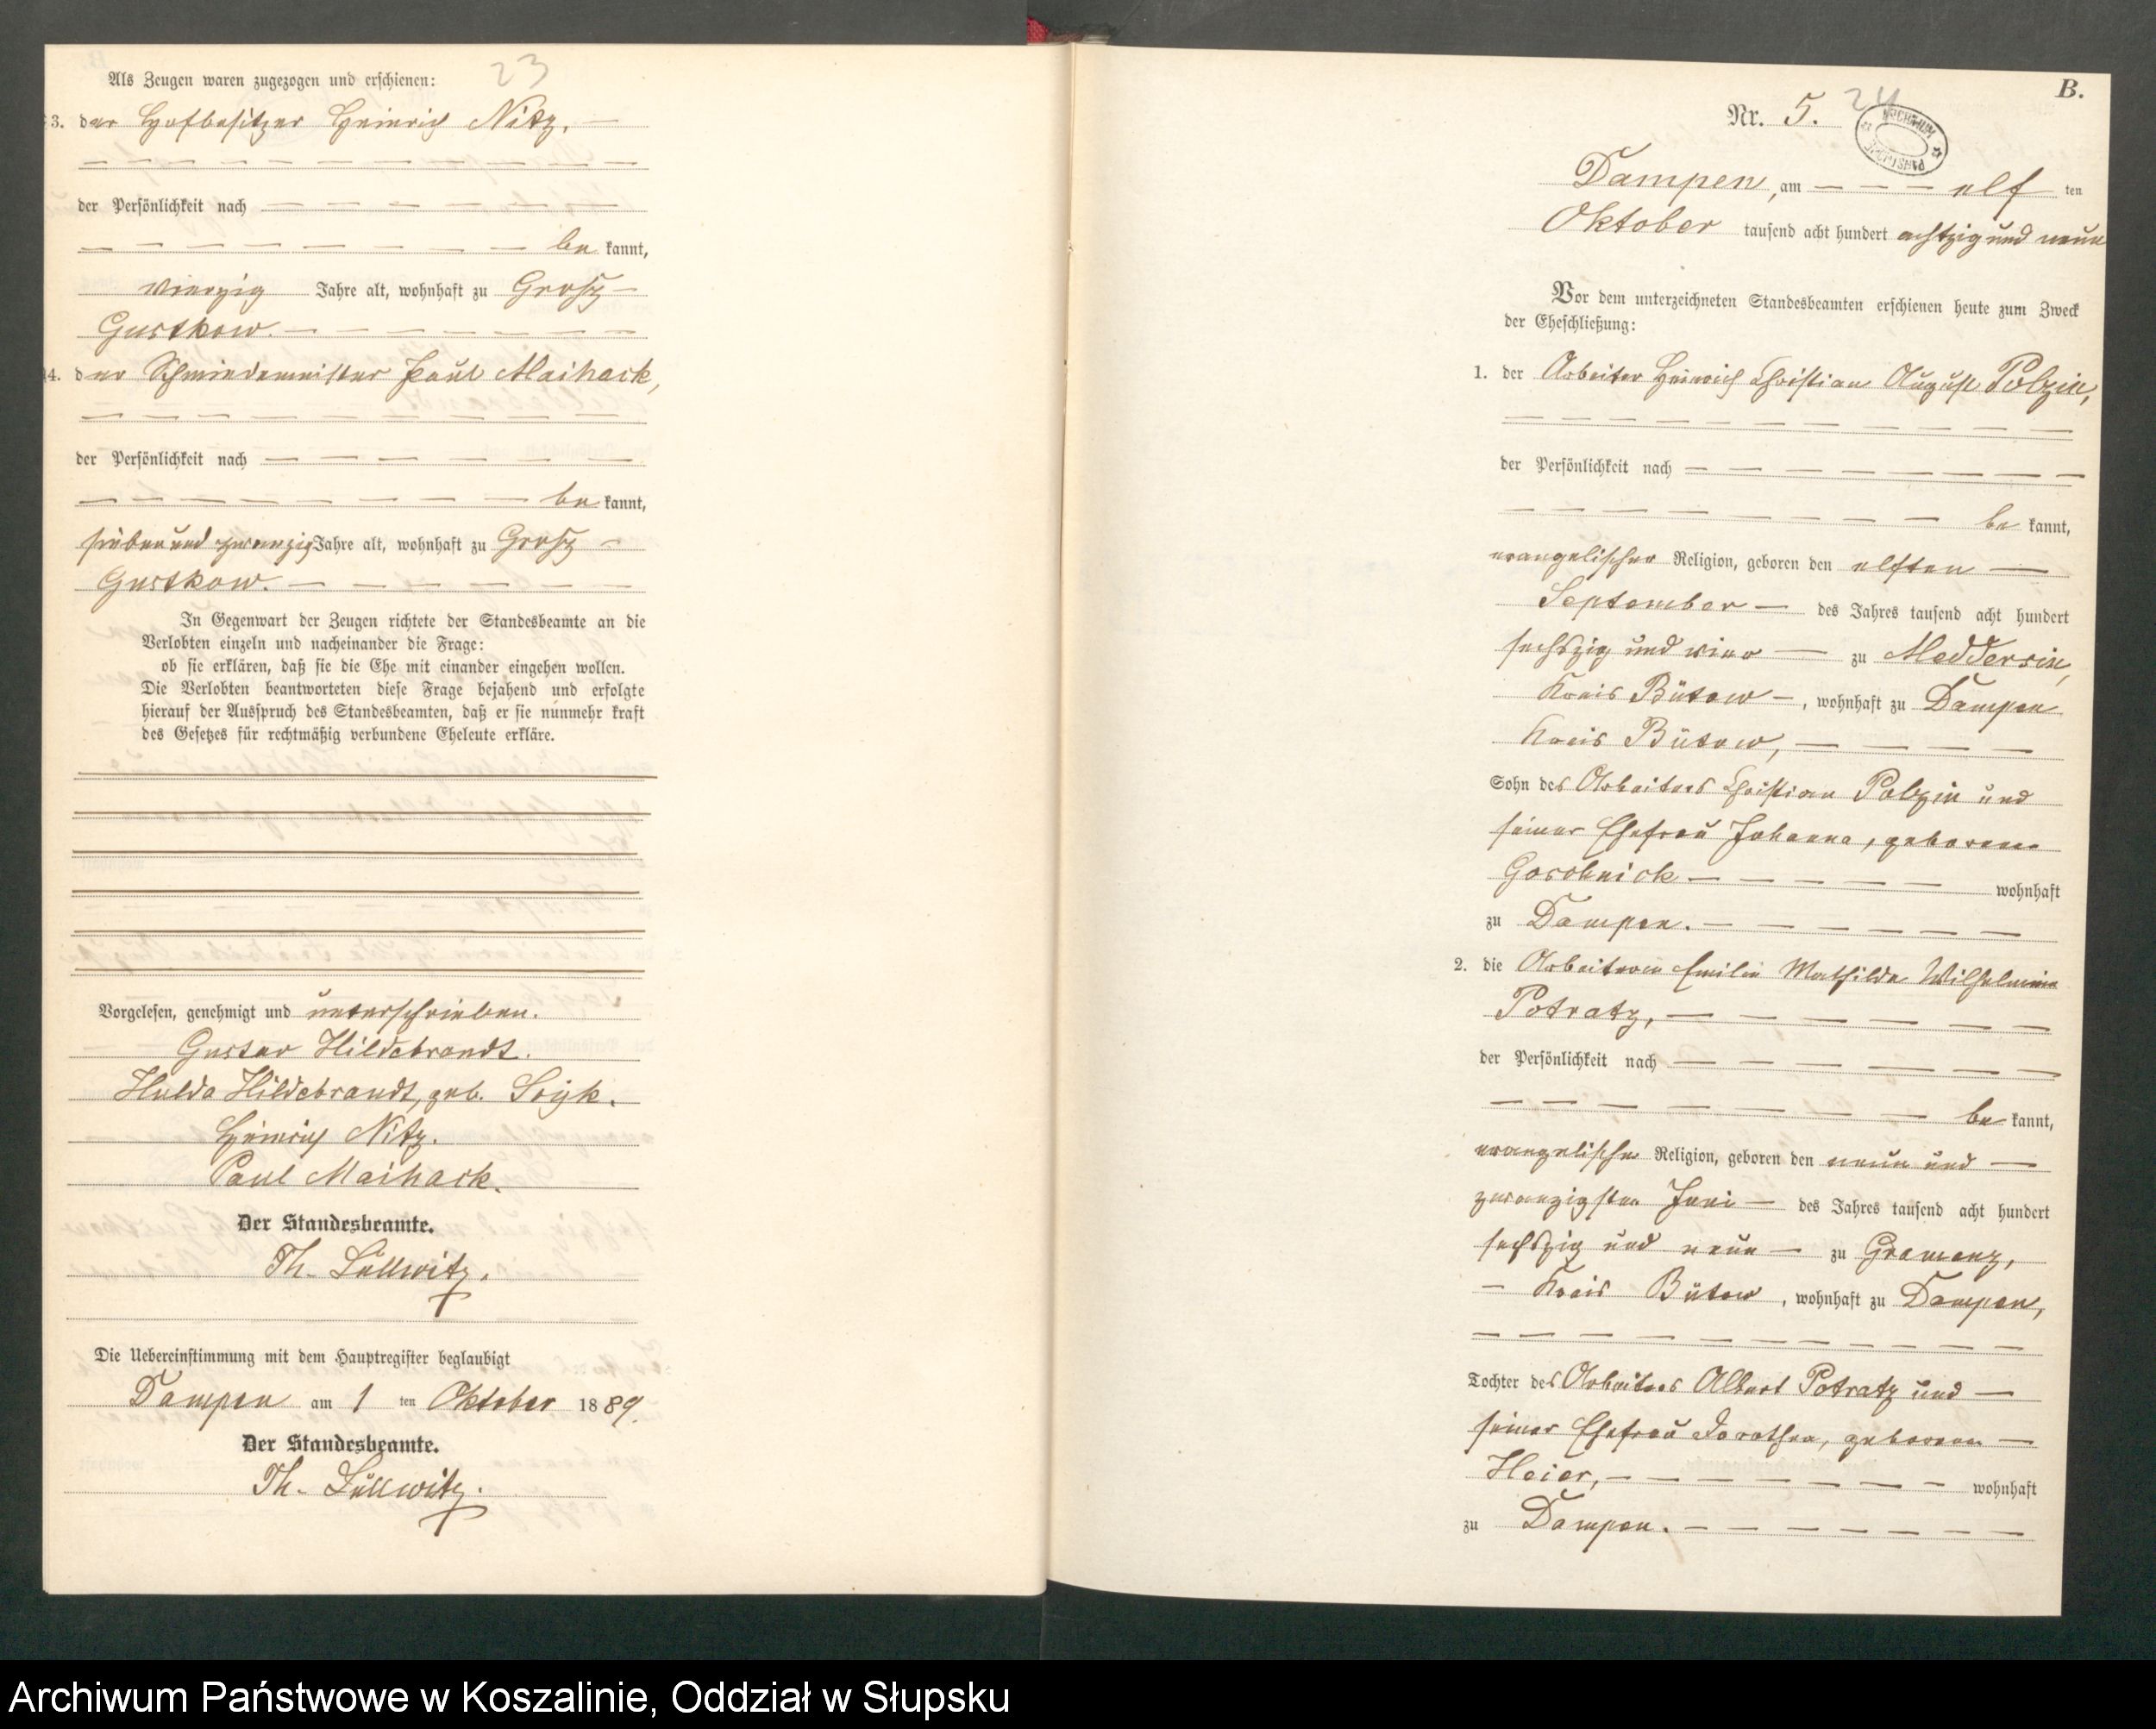 23
Als Zeugen waren zugezogen und erschienen:
3. der Hofbesitzer Heinrich Nitz. —
— — — — — — — — — —
der Persönlichkeit nach — — — — — — —
— — — — — — — — be kannt,
vierzig Jahre alt, wohnhaft zu Grosz-
Gustkow. — — — — — — —
4. der Schmiedemeister Paul Maihack,
— — — — — — — — — —
der Persönlichkeit nach — — — — — — —
— — — — — — — — be kannt,
sieben und zwanzig Jahre alt, wohnhaft zu Grosz-
Gustkow. — — — — — — —
In Gegenwart der Zeugen richtete der Standesbeamte an die
Verlobten einzeln und nacheinander die Frage:
ob sie erklären, daß sie die Ehe mit einander eingehen wollen.
Die Verlobten beantworteten diese Frage bejahend und erfolgte
hierauf der Ausspruch des Standesbeamten, daß er sie nunmehr kraft
des Gesetzes für rechtmäßig verbundene Eheleute erkläre.
Vorgelesen, genehmigt und unterschrieben.
Gustav Hildebrandt.
Hulda Hildebrandt, geb. Soyk.
Heinrich Nitz.
Paul Maihack.
Der Standesbeamte.
Th. Lüllwitz.
Die Uebereinstimmung mit dem Hauptregister beglaubigt
Dampen am 1 ten Oktober 1889.
Der Standesbeamte.
Th. Lüllwitz.
B.
Nr. 5. 24
ARCHIWUM PAŃSTWOWE
Dampen, am — — — elf ten
Oktober tausend acht hundert achtzig und neun
Vor dem unterzeichneten Standesbeamten erschienen heute zum Zweck
der Eheschließung:
1. der Arbeiter Heinrich Christian August Polzin,
— — — — — — — — — —
der Persönlichkeit nach — — — — — — — —
— — — — — — — — be kannt,
evangelischer Religion, geboren den elften —
September — des Jahres tausend acht hundert
sechszig und vier — zu Meddersin,
Kreis Bütow —, wohnhaft zu Dampen
Kreis Bütow, — — — —
Sohn des Arbeiters Christian Polzin und
seiner Ehefrau Johanna, geborene
Goschnick — — — — — wohnhaft
zu Dampen. — — — — — —
2. die Arbeiterin Emilie Mathilde Wilhelmine
Potratz, — — — — — — —
der Persönlichkeit nach — — — — — — — —
— — — — — — — — be kannt,
evangelischer Religion, geboren den neun und —
zwanzigsten Juni — des Jahres tausend acht hundert
sechszig und neun — zu Gramenz,
— Kreis Bütow, wohnhaft zu Dampen,
— — — — — — — — — —
Tochter des Arbeiters Albert Potratz und —
seiner Ehefrau Dorothea, geborene —
Heier, — — — — — — — wohnhaft
zu Dampen. — — — — — — —
Archiwum Państwowe w Koszalinie, Oddział w Słupsku